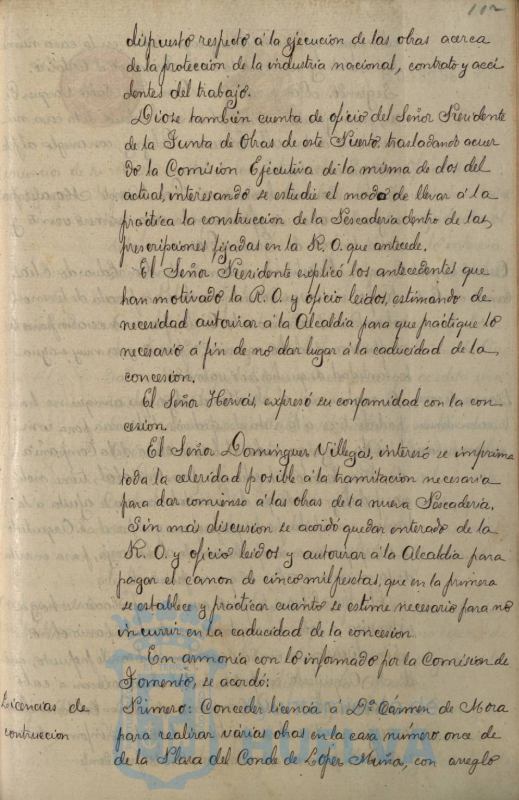 112
dispuesto respecto á la ejecucion de las obras acerca
de la protección de la industria nacional, contrato y acci
dentes del trabajo.
Diose también cuenta de oficio del Señor Presidente
de la Junta de Obras de este Puerto trasladando acuer
do la Comisión Ejecutiva de la misma de dos del
actual, interesando se estudie el modo de llevar á la
práctica la construccion de la Pescadería dentro de las
prescripciones fijadas en la R. O. que antecede.
El Señor Presidente explicó los antecedentes que
han motivado la R. O. y oficio leidos, estimando de
necesidad autorizar á la Alcaldía para que practique lo
necesario á fin de no dar lugar á la caducidad de la
concesion.
El Señor Hervás, expresó su conformidad con la con
cesion.
El Señor Dominguez Villegas, interesó se imprima
toda la celeridad posible á la tramitacion necesaria
para dar comienso á las obras de la nueva Pescadería.
Sin más discusion se acordó quedar enterado de la
R. O. y oficio leidos y autorizar á la Alcaldía para
pagar el canon de cinco mil pesetas, que en la primera
se establece y practicar cuanto se estime necesario para no
incurrir en la caducidad de la concesion.
En armonía con lo informado por la Comision de
Fomento, se acordó:
Licencias de
contruccion
Primero: Conceder licencia á Dª Cármen de Mora
para realizar várias obras en la casa número once de
de la Plaza del Conde de López Muña, con arreglo
HUELVA